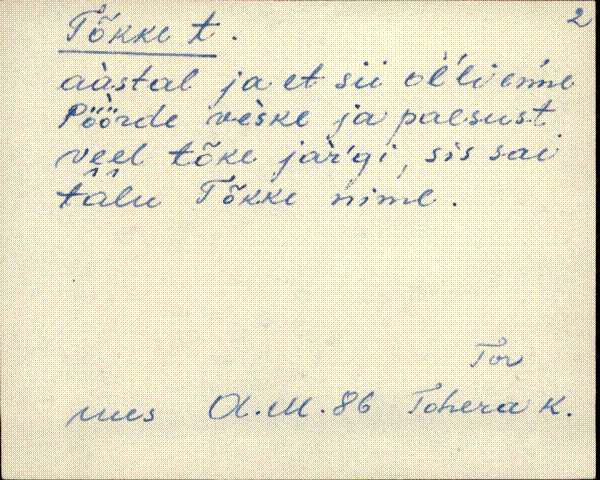 2
Tõkke t.
aàstal ja et sii ol̀'li enǹe
Pöörde vèske ja paesust
veel tõke jàr'gi, sis sai
tâlu Tõkke nime.
Tor
mes A.M.86 Tohera K.